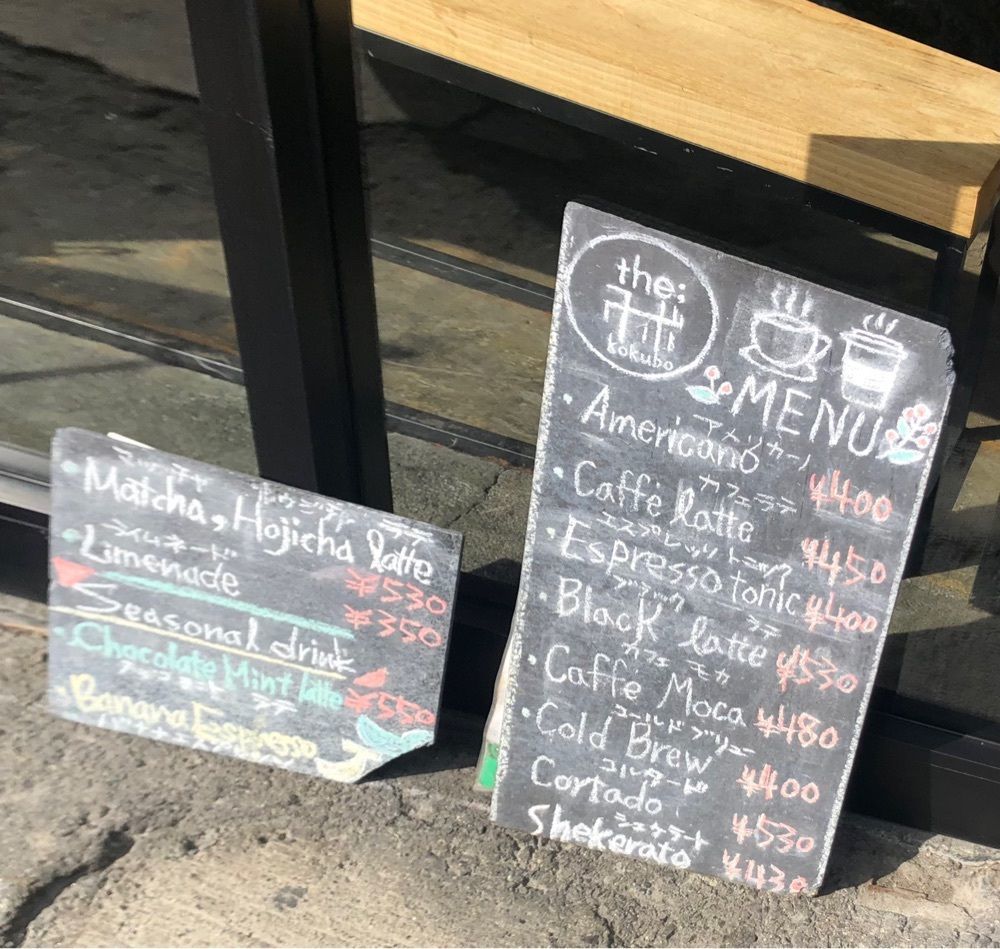 マッチャ ホウジチャ ラテ
Matcha, Hojicha latte
¥530
ライムネード
Limenade
¥350
Seasonal drink
Chocolate Mint latte
¥550
ラテ
Banana Espresso
the:
kokubo
MENU
アメリカーノ
Americano
¥400
カフェラテ
Caffe latte
¥450
エスプレッソトニック
Espresso tonic
¥400
ブラック ラテ
Black latte
¥530
カフェ モカ
Caffe Moca
¥480
コールドブリュー
Cold Brew
¥400
コルタード
Cortado
¥530
シェケラート
Shekerato
¥430